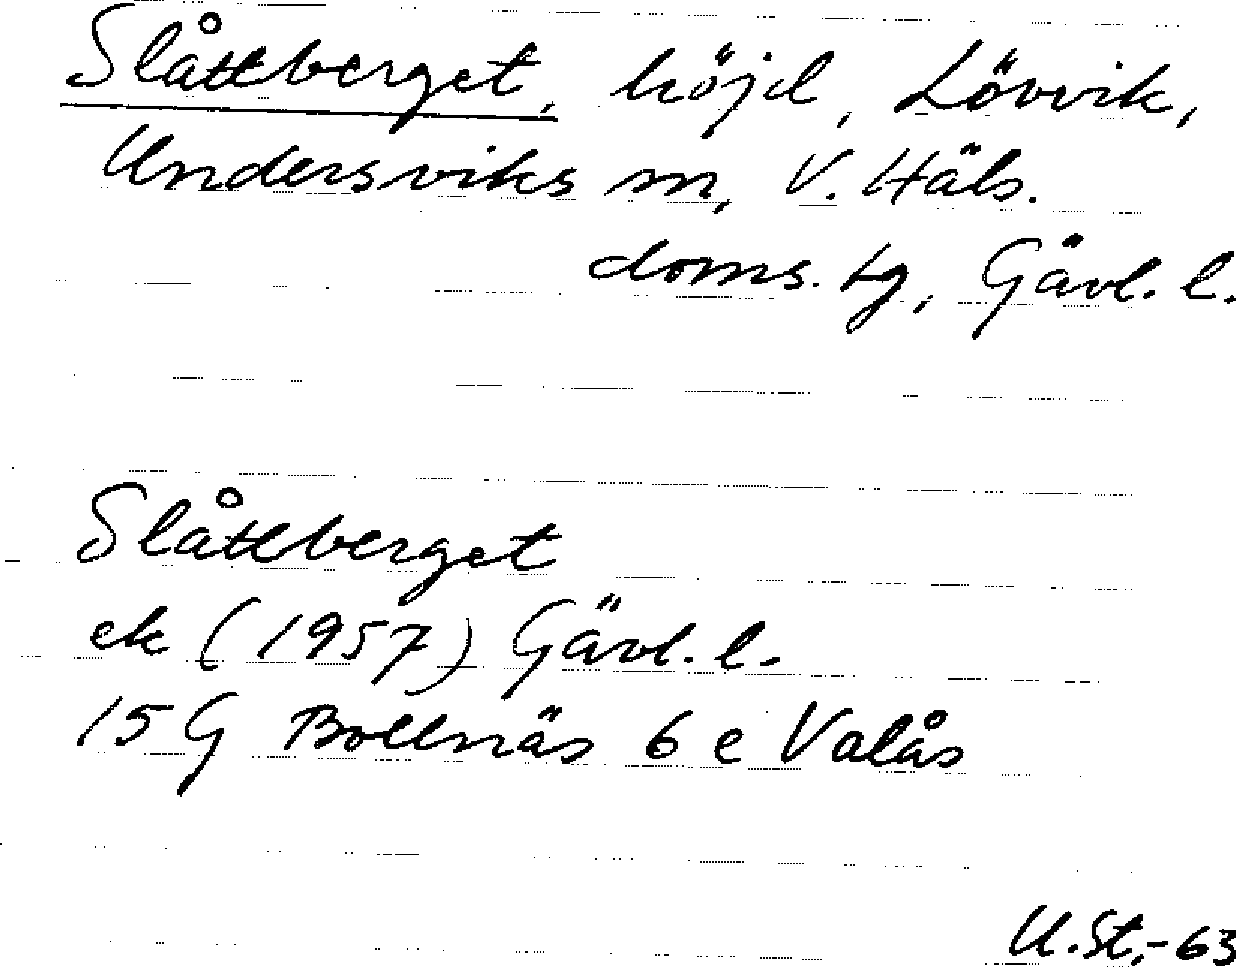 Slåttberget, höjd, Lövvik,
Undersviks sn, V. Häls.
doms. tg, Gävl. l.
Slåttberget
ek (1957) Gävl. l.
15 G Bollnäs 6 e Valås
U.St.-63